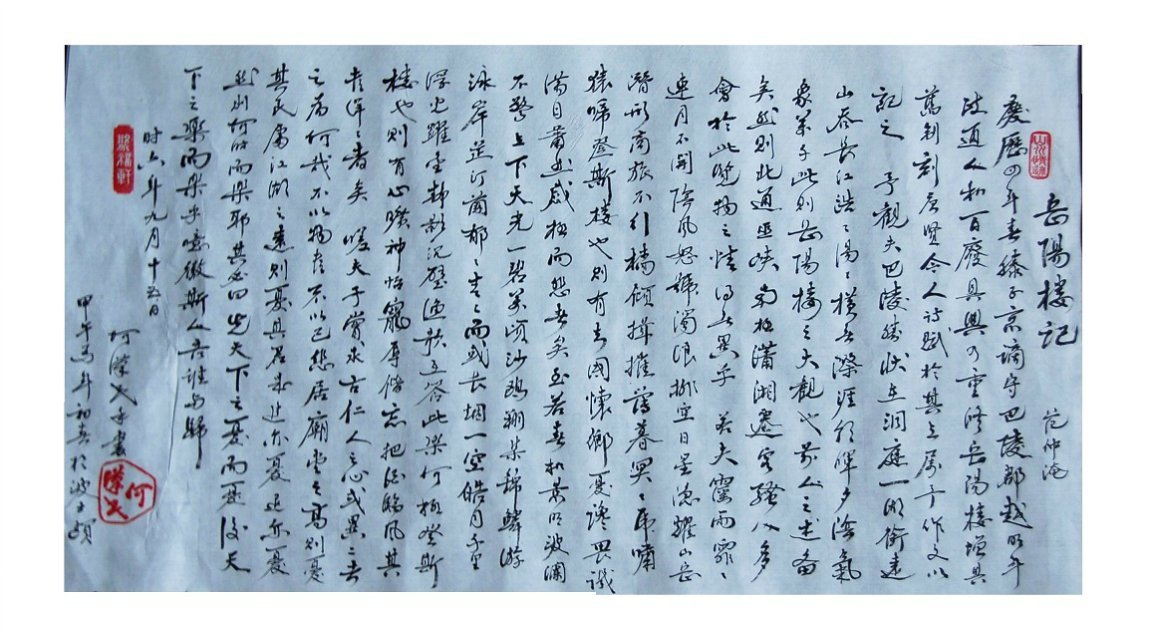 岳陽樓記 范仲淹
慶歷四年春滕子京謫守巴陵郡越明年
政通人和百廢具興乃重修岳陽樓增其
舊制刻唐賢今人詩賦於其上屬予作文以
記之 予觀夫巴陵勝狀在洞庭一湖銜遠
山吞長江浩々湯々橫無際涯朝暉夕陰氣
象萬千此則岳陽樓之大觀也前人之述備
矣然則北通巫峽南極瀟湘遷客騷人多
會於此覽物之情得無異乎 若夫霪雨霏々
連月不開陰風怒號濁浪排空日星隱耀山岳
潛形商旅不行檣傾楫摧薄暮冥々虎嘯
猿啼登斯樓也則有去國懷鄉憂讒畏譏
滿目蕭然感極而悲者矣至若春和景明波瀾
不驚上下天光一碧萬頃沙鷗翔集錦鱗游
泳岸芷汀蘭郁々青々而或長煙一空皓月千里
浮光躍金靜影沉璧漁歌互答此樂何極登斯
樓也則有心曠神怡寵辱偕忘把酒臨風其
喜洋々者矣 嗟夫予嘗求古仁人之心或異二者
之為何哉不以物喜不以己悲居廟堂之高則憂
其民處江湖之遠則憂其君是進亦憂退亦憂
然則何時而樂耶其必曰先天下之憂而憂後天
下之樂而樂乎噫微斯人吾誰與歸
时六年九月十五日
何漢民手書
甲午馬年初春於
何漢民